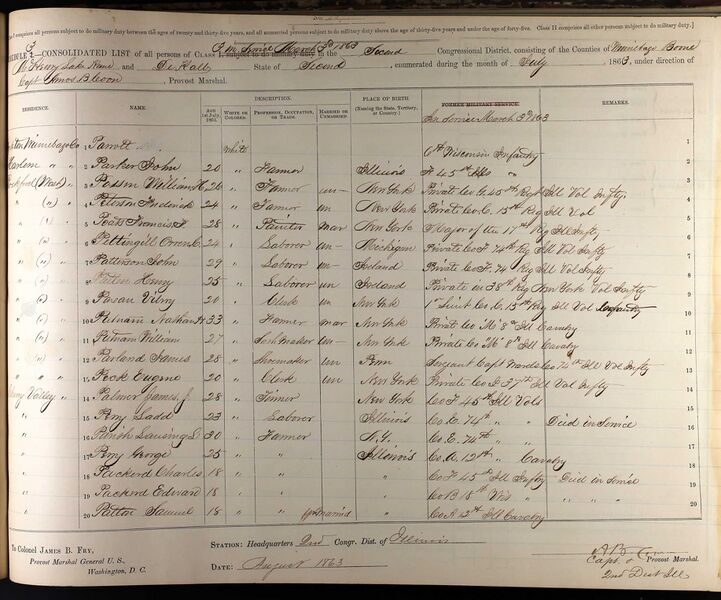 [Class I comprises all persons subject to do military duty between the ages of twenty and thirty-five years, and all unmarried persons subject to do military duty above the age of thirty-five years and under the age of forty-five. Class II comprises all other persons subject to do military duty.]
SCHEDULE 3 —CONSOLIDATED LIST of all persons of CLASS I, subject to do military duty in the In Service March 3d 1863 Second Congressional District, consisting of the Counties of Winnebago Boone
McHenry Lake Kane and DeKalb State of Second, enumerated during the month of July, 1863, under direction of
Capt Amos B. Coon, Provost Marshal.
RESIDENCE. NAME. AGE 1st July, 1863. DESCRIPTION. WHITE OR COLORED. PROFESSION, OCCUPATION, OR TRADE. MARRIED OR UNMARRIED. PLACE OF BIRTH (Naming the State, Territory, or Country.) FORMER MILITARY SERVICE. REMARKS.
In Service March 3d 1863
Winnebago Co 1 Parrott White 6th Wisconsin Infantry 1
Harlem " " 2 Parker John 20 " Farmer Illinois F 45th Ills " 2
Rockford (West) " 3 William H 26 " Farmer un- New York Private Co G. 45th Regt Ill Vol Infty. 3
" (") " 4 Frederick 24 " Farmer un New York Private Co C. 15th Reg Ill Vol 4
" (") " 5 Peats Francis F. 28 " Painter mar New York Major of the 17th Reg Ill Infty 5
" (") " 6 Pettingill Orren C. 24 " Laborer un- Michigan Private Co F 74th Reg Ill Vol Infty 6
" (") " 7 Patterson John 29 " Laborer un Ireland Private Co F. 74 Reg Ill Vol Infty 7
" (") " 8 Patten Henry 25 " Laborer un Ireland Private in 38th Reg New York Vol Infty 8
" (") " 9 20 " Clerk un New York 1st Lieut Co C, 15th Reg Ill Vol Infantry 9
" (") " 10 Putnam Nathan H 33 " Farmer mar New York Private Co "M" 8th Ill Cavalry 10
" (") " 11 Putnam William 27 " un- New York Private Co "M" 8th Ill Cavalry 11
" " " 12 Parland James 28 " Shoemaker un Penn Sergeant Capt Co 74th Ill Vol Infty 12
" " " 13 Peck Eugene 20 " Clerk un New York Private Co 37th Ill Vol Infty 13
Cherry Valley " 14 Palmer James J. 28 " Tinner New York Co F 45th Ill Vols 14
" " 15 Pery Ladd 23 " Laborer Illinois Co E. 74th " " Died in Service 15
" " 16 Lansing D. 30 " Farmer N.Y. Co E. 74th " " 16
" " 17 Pery George 25 " " Illinois Co A. 12th " Cavalry 17
" " 18 Packerd Charles 18 " " " Co F 45th Ill Infty Died in Service 18
" " 19 Packerd Edward 18 " " " Co B 18th Wis " " " " 19
" " 20 Patten Samuel 18 " " Married " Co A 12th Ill Cavalry 20
To Colonel JAMES B. FRY,
Provost Marshal General U. S.,
Washington, D. C.
STATION: Headquarters 2nd Congr. Dist. of Illinois
DATE: August 1863
Capt. & Provost Marshal.
2nd Dist Ills